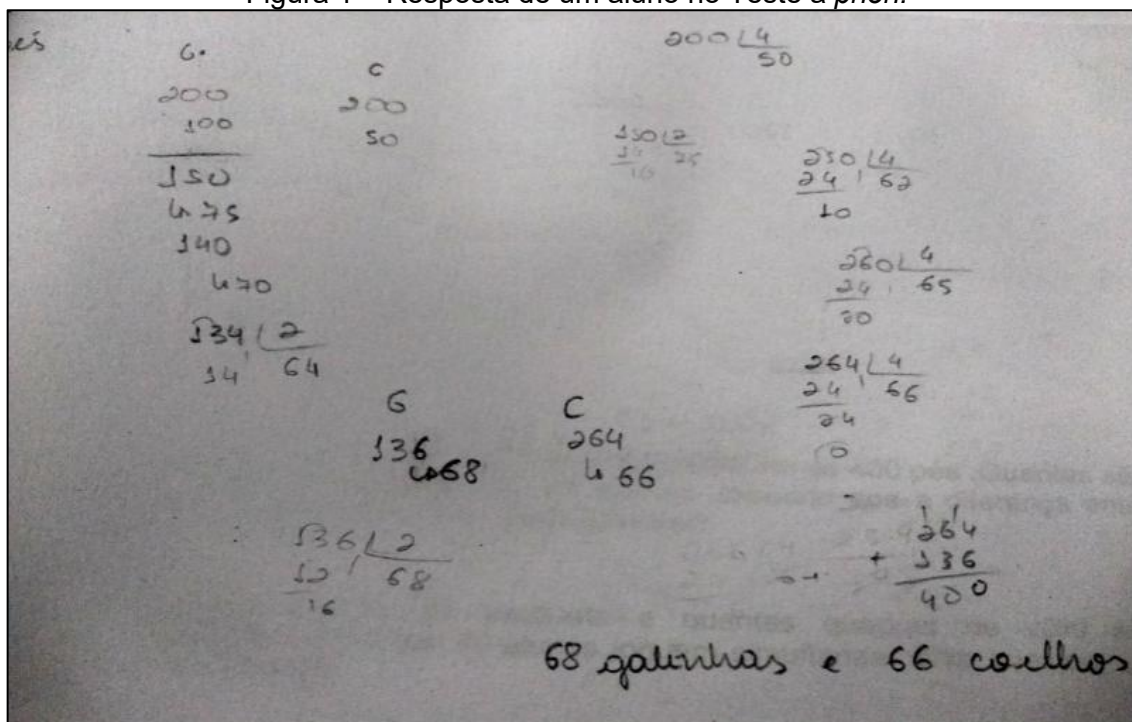 Figura 1 – Resposta de um aluno no Teste a priori
G.
200
100
150
↳ 75
140
↳ 70
134 | 2
14 64
C
200
50
200 | 4
50
150 | 2
14 75
10
250 | 4
24 62
10
260 | 4
24 65
20
264 | 4
24 66
24
0
G
136
↳ 68
C
264
↳ 66
136 | 2
12 68
16
1 1
264
+ 136
400
68 galinhas e 66 coelhos